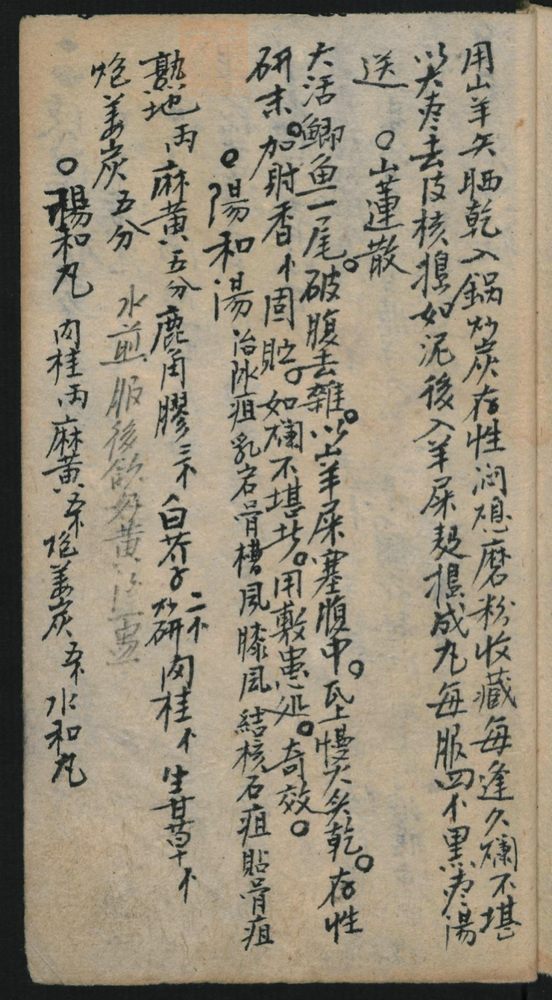 用山羊矢晒乾入鍋炒炭存性润磨粉收藏每逢久爛不堪
以大枣去皮核搗如泥後入羊屎麪搗成丸每服四个黑枣湯
送 〇山蓮散
大活鯽魚一尾。破腹去雜。以山羊屎塞腹中。瓦上慢火炙乾。存性
研末。加射香个固貯。如爛不堪者。用敷患处。奇效。
〇陽和湯 治阴疽乳岩骨槽風膝風結核石疽貼骨疽
熟地両 麻黄五分 鹿角膠三个 白芥子二个炒研 肉桂个 生甘草个
炮姜炭五分 水煎服後飲
〇陽和丸 肉桂両 麻黄五个 炮姜炭五个 水和丸